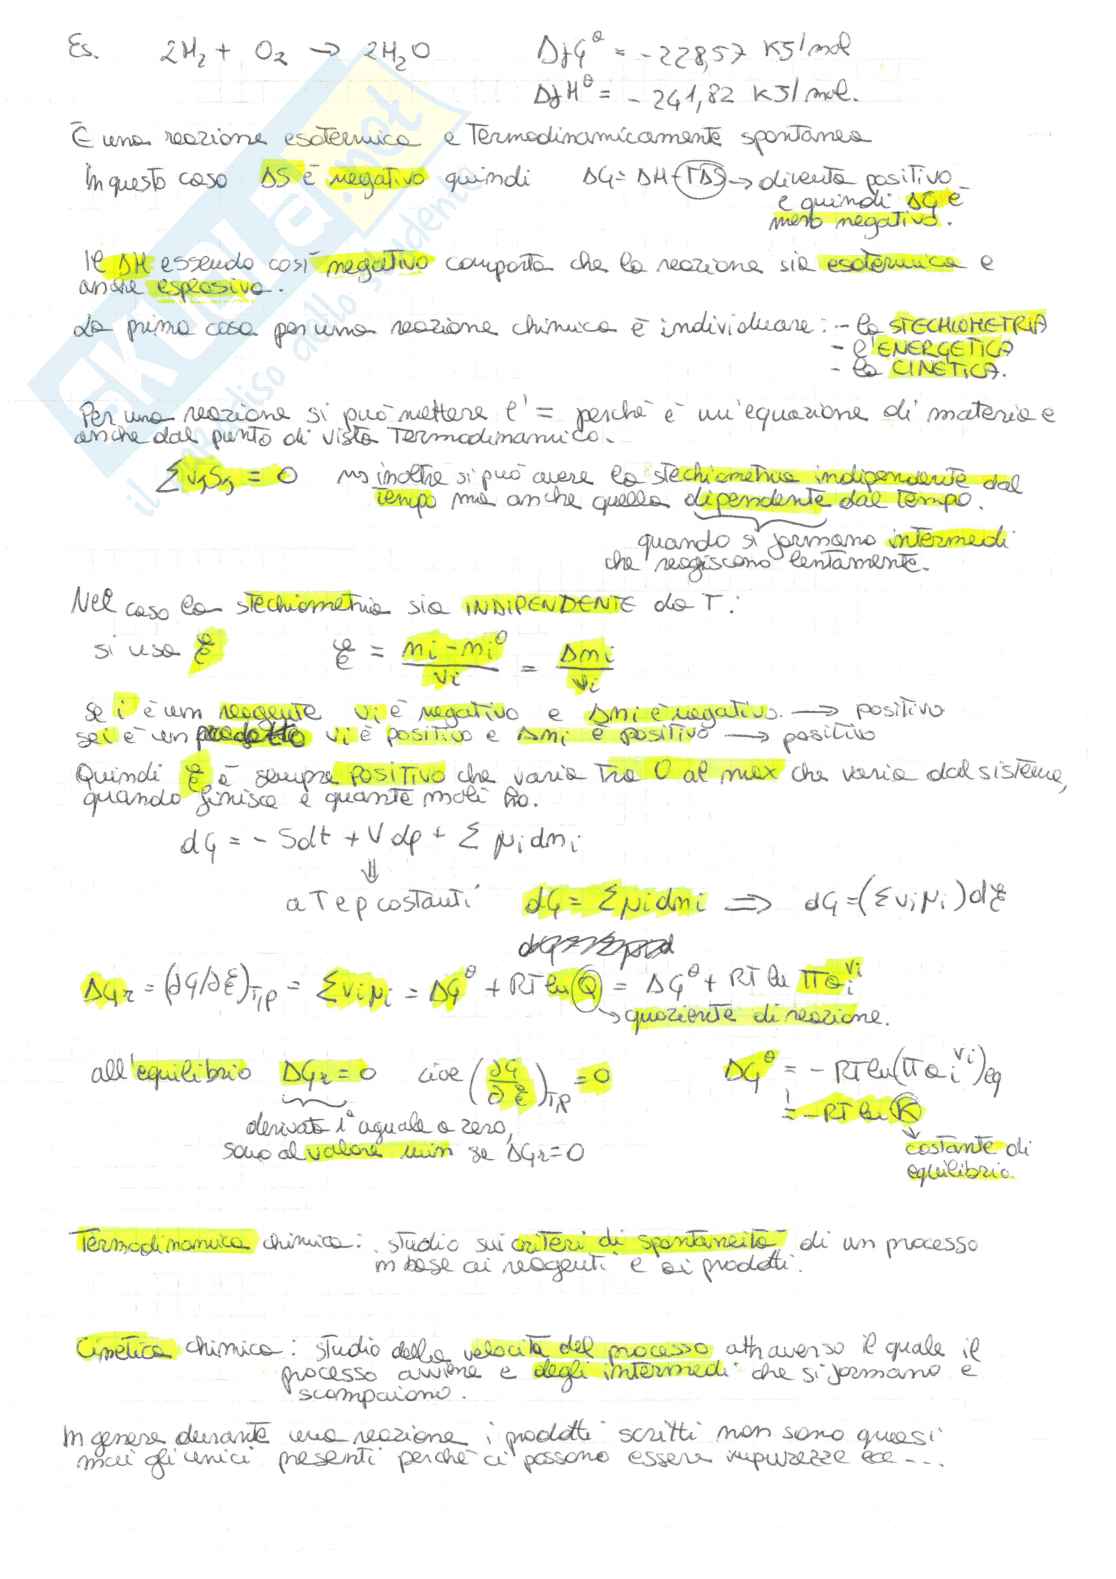 Es. 2H₂ + O₂ → 2H₂O ΔfG^θ = -228,57 KJ/mol
ΔfH^θ = -241,82 KJ/mol.
È una reazione esotermica e termodinamicamente spontanea
In questo caso ΔS è negativo quindi ΔG = ΔH-TΔS → diventa positivo
e quindi ΔG è
meno negativo.
Il ΔH essendo così negativo comporta che la reazione sia esotermica e
anche esplosiva.
La prima cosa per una reazione chimica è individuare: - la STECHIOMETRIA
- l'ENERGETICA
- la CINETICA.
Per una reazione si può mettere l' = perchè è un'equazione di materia e
anche dal punto di vista termodinamico.
Σ νJSJ = 0 inoltre si può avere la stechiometria indipendente dal
tempo ma anche quella dipendente dal tempo.
quando si formano intermedi
che reagiscono lentamente.
Nel caso la stechiometria sia INDIPENDENTE da T:
si usa ξ ξ = (ni - ni⁰)/νi = Δni/νi
se i è un reagente νi è negativo e Δni è negativo. → positivo
se i è un prodotto νi è positivo e Δni è positivo → positivo
Quindi ξ è sempre positivo che varia tra 0 al max che varia dal sistema,
quando finisce e quante moli ho.
dG = - Sdt + Vdp + Σ μidni
⇓
a T e p costanti dG = Σμidni ⇒ dG = (Σνiμi)dξ
ΔGr = (∂G/∂ξ)T,P = Σνiμi = ΔG^θ + RT ln Q = ΔG^θ + RT ln Πai^νi
→ quoziente di reazione.
all'equilibrio ΔGr = 0 cioè (∂G/∂ξ)T,P = 0 ΔG^θ = - RT ln(Πai^νi)eq
= - RT ln K
derivata 1ª uguale a zero,
sono al valore min se ΔGr = 0
costante di
equilibrio.
Termodinamica chimica: studio sui criteri di spontaneità di un processo
in base ai reagenti e ai prodotti.
Cinetica chimica: studio della velocità del processo attraverso il quale il
processo avviene e degli intermedi che si formano e
scompaiono.
In genere durante una reazione i prodotti scritti non sono quasi
mai gli unici presenti perchè ci possono essere impurezze ecc...
SKUOLA.net
il paradiso dello studente